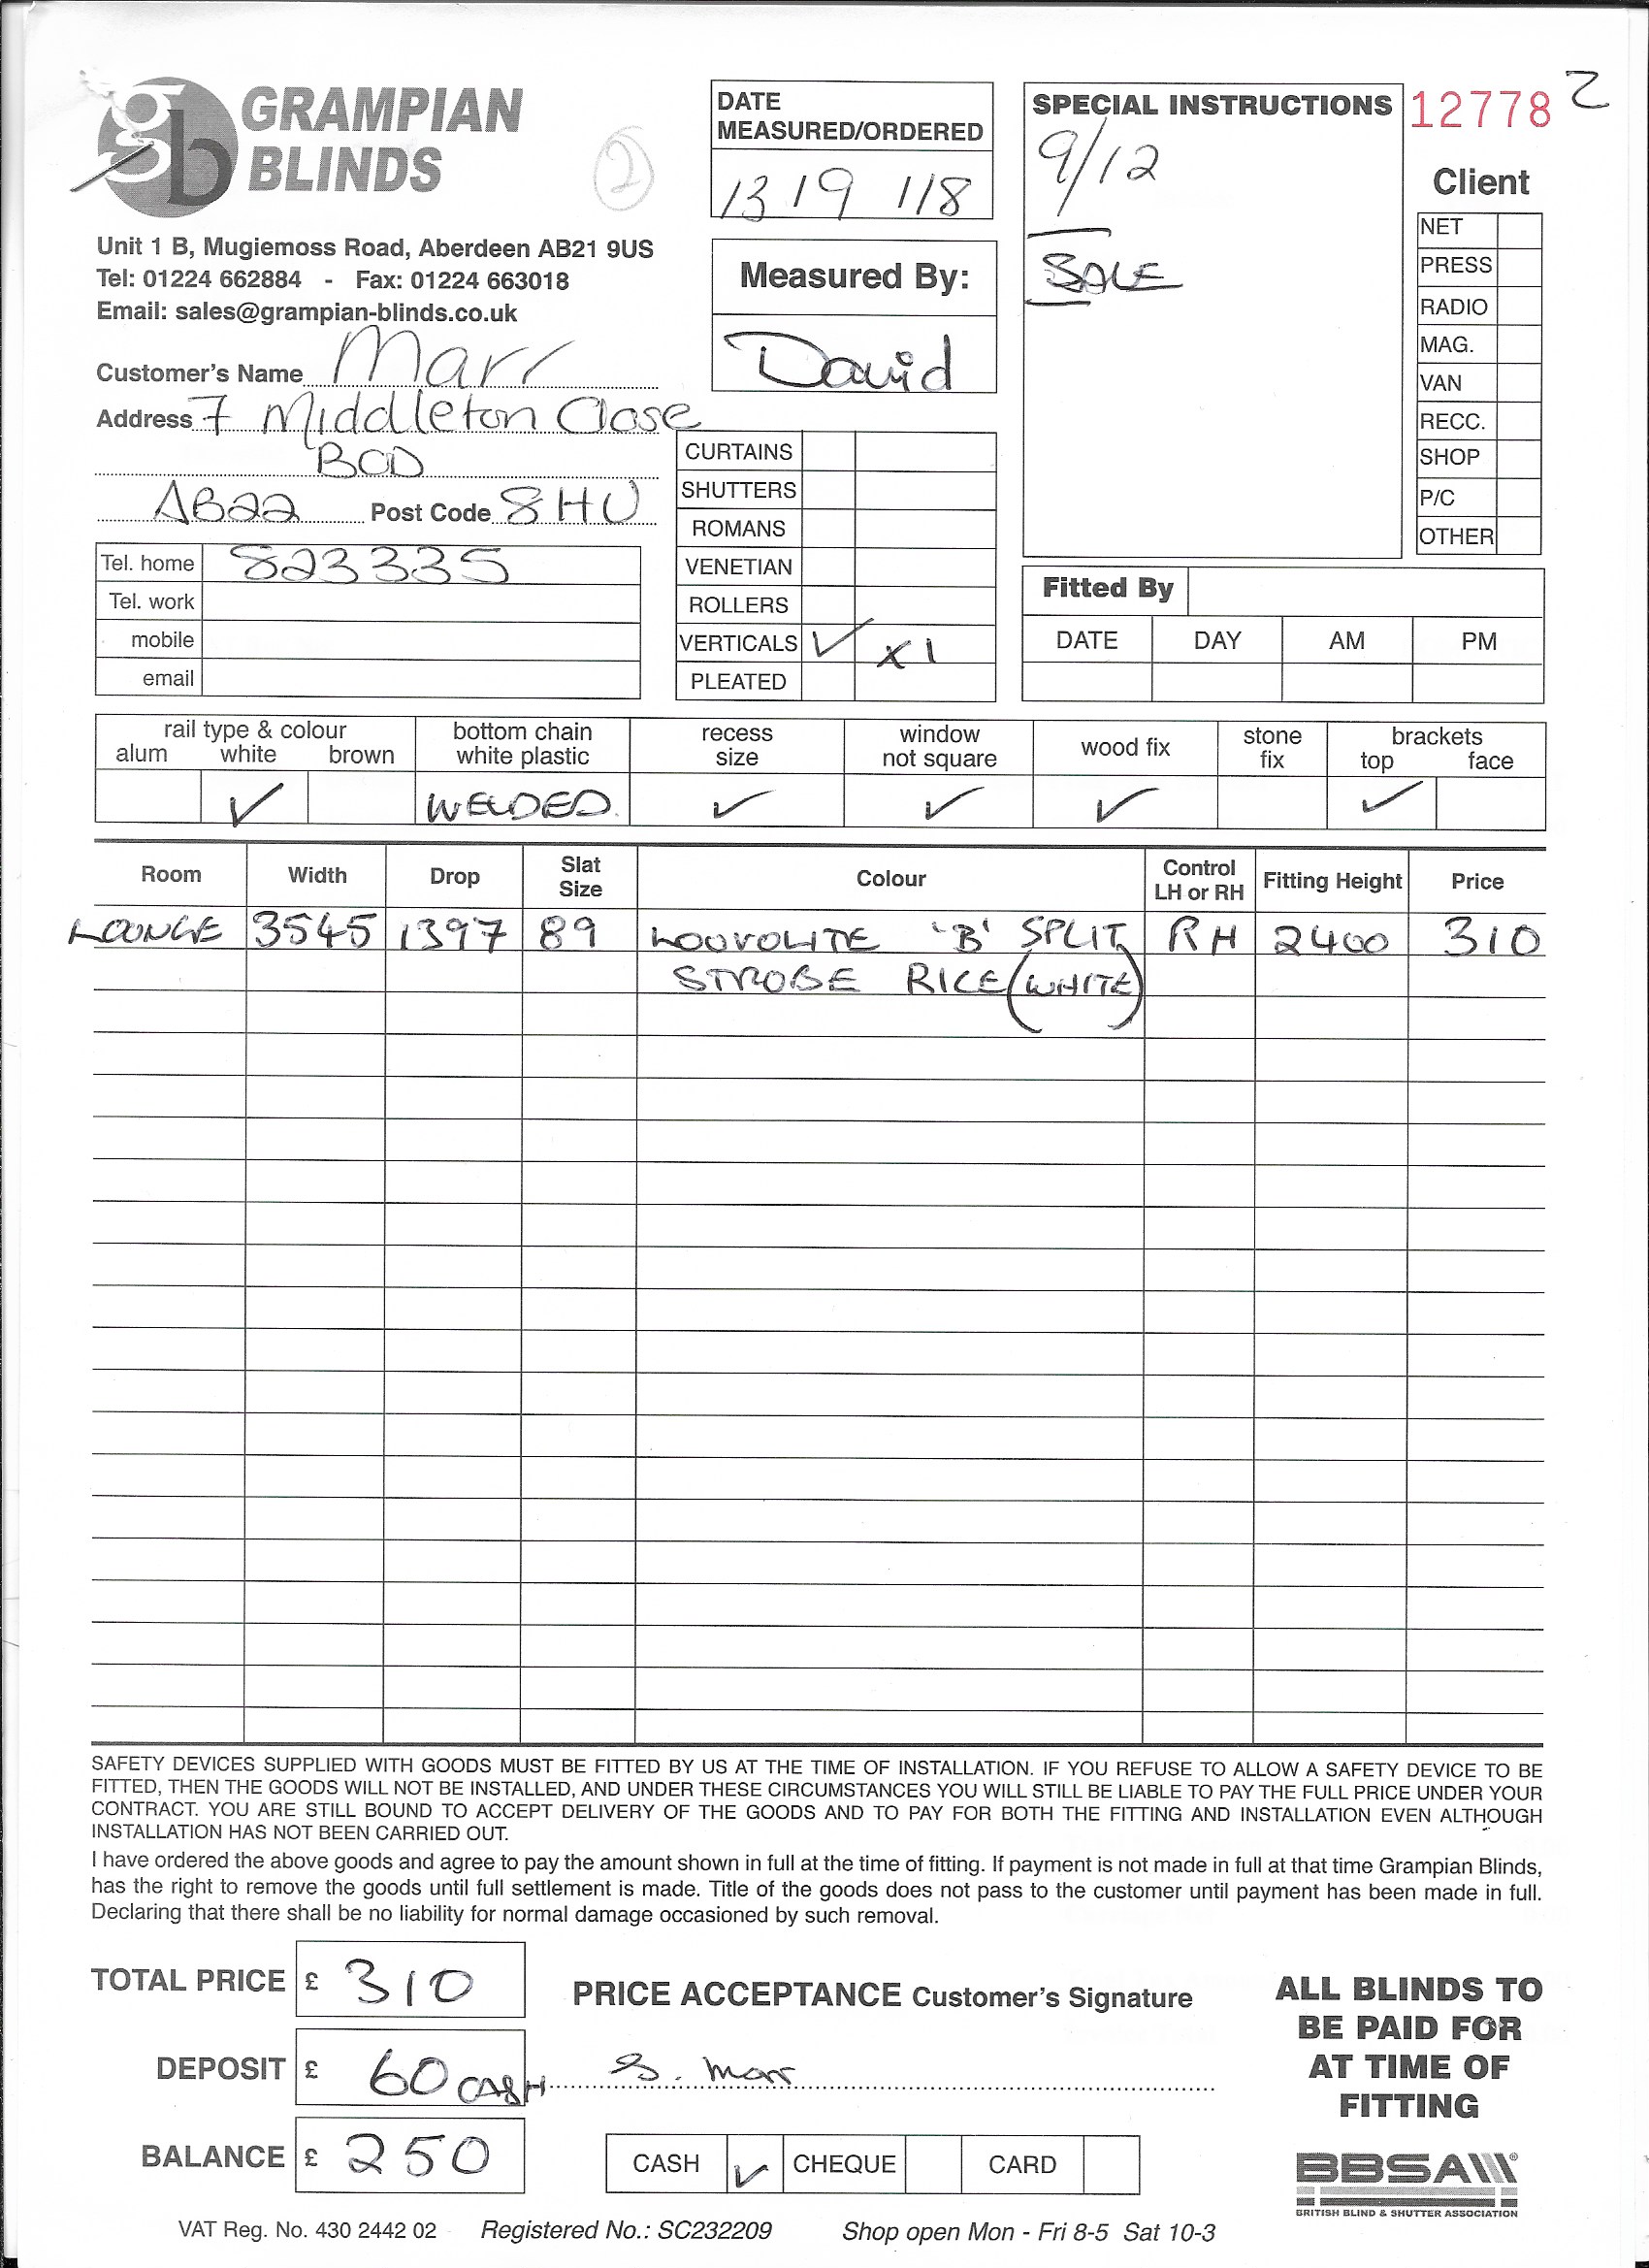 gb GRAMPIAN BLINDS
2
Unit 1 B, Mugiemoss Road, Aberdeen AB21 9US
Tel: 01224 662884 - Fax: 01224 663018
Email: sales@grampian-blinds.co.uk
Customer's Name Marr
Address 7 Middleton Close
BOD
AB22 Post Code 8HU
Tel. home 823335
Tel. work
mobile
email
DATE MEASURED/ORDERED
13/9/18
Measured By:
David
CURTAINS
SHUTTERS
ROMANS
VENETIAN
ROLLERS
VERTICALS ✓ x1
PLEATED
SPECIAL INSTRUCTIONS
9/12
SALE
12778 2
Client
NET
PRESS
RADIO
MAG.
VAN
RECC.
SHOP
P/C
OTHER
Fitted By
DATE DAY AM PM
rail type & colour bottom chain recess window wood fix stone brackets
alum white brown white plastic size not square fix top face
✓ WELDED. ✓ ✓ ✓ ✓
Room Width Drop Slat Size Colour Control LH or RH Fitting Height Price
LOUNGE 3545 1397 89 LOUVOLITE 'B' SPLIT RH 2400 310
STROBE RICE (WHITE)
SAFETY DEVICES SUPPLIED WITH GOODS MUST BE FITTED BY US AT THE TIME OF INSTALLATION. IF YOU REFUSE TO ALLOW A SAFETY DEVICE TO BE
FITTED, THEN THE GOODS WILL NOT BE INSTALLED, AND UNDER THESE CIRCUMSTANCES YOU WILL STILL BE LIABLE TO PAY THE FULL PRICE UNDER YOUR
CONTRACT. YOU ARE STILL BOUND TO ACCEPT DELIVERY OF THE GOODS AND TO PAY FOR BOTH THE FITTING AND INSTALLATION EVEN ALTHOUGH
INSTALLATION HAS NOT BEEN CARRIED OUT.
I have ordered the above goods and agree to pay the amount shown in full at the time of fitting. If payment is not made in full at that time Grampian Blinds,
has the right to remove the goods until full settlement is made. Title of the goods does not pass to the customer until payment has been made in full.
Declaring that there shall be no liability for normal damage occasioned by such removal.
TOTAL PRICE £ 310
DEPOSIT £ 60 CASH
BALANCE £ 250
PRICE ACCEPTANCE Customer's Signature
S. Marr
CASH ✓ CHEQUE CARD
ALL BLINDS TO
BE PAID FOR
AT TIME OF
FITTING
BBSA ®
BRITISH BLIND & SHUTTER ASSOCIATION
VAT Reg. No. 430 2442 02 Registered No.: SC232209 Shop open Mon - Fri 8-5 Sat 10-3